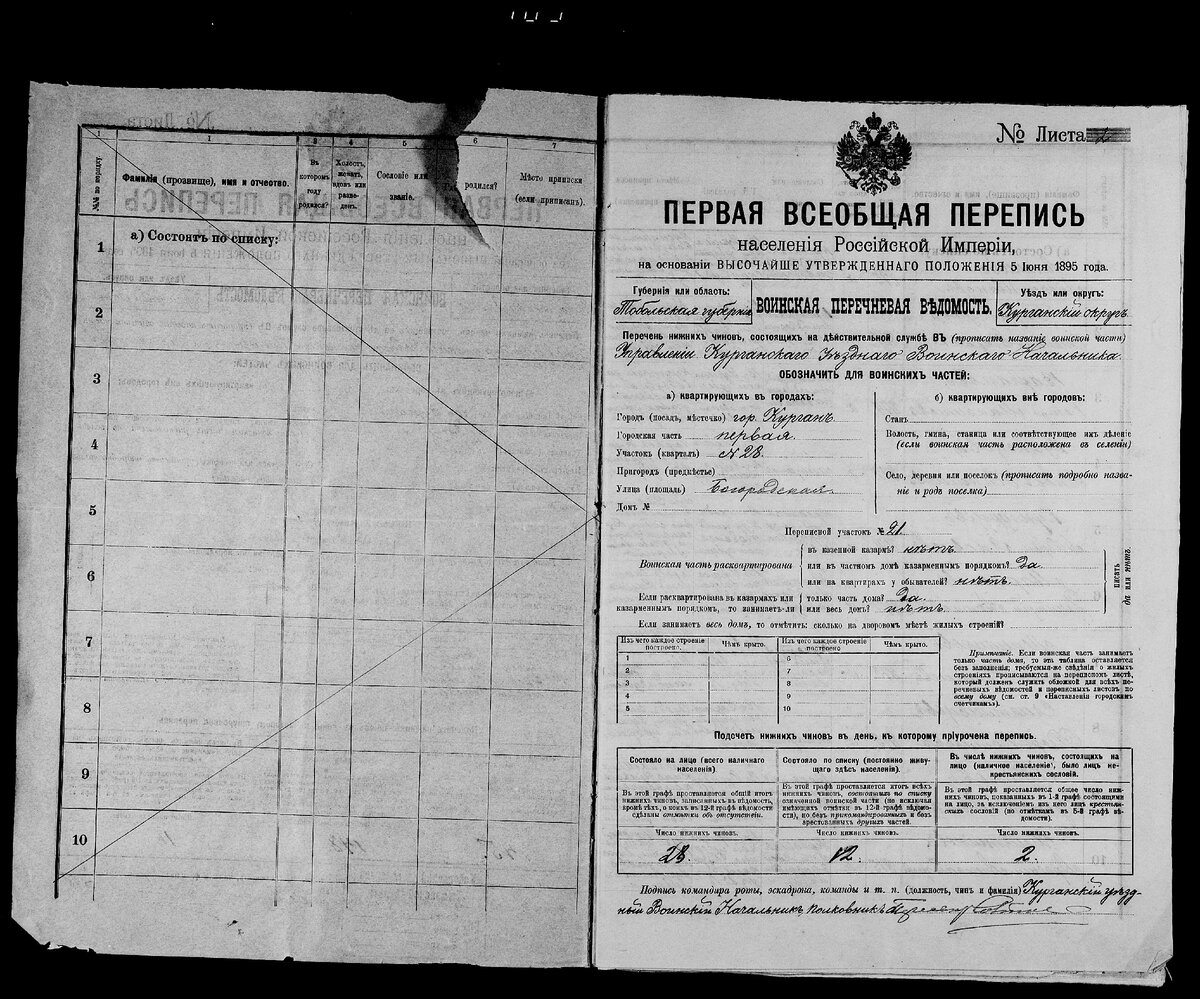 1
1
3
4
5
6
7
№№ по порядку.
Фамилія (прозвище), имя и отчество.
Въ которомъ году родился?
Холостъ, женатъ, вдовъ или разве-денъ.
Сословіе или званіе.
родился?
Мѣсто приписки (если приписанъ).
а) Состоятъ по списку:
1
2
3
4
5
6
7
8
9
10
№ Листа
ПЕРВАЯ ВСЕОБЩАЯ ПЕРЕПИСЬ
населенія Россійской Имперіи,
на основаніи ВЫСОЧАЙШЕ УТВЕРЖДЕННАГО ПОЛОЖЕНІЯ 5 Іюня 1895 года.
Губернія или область:
Тобольская губернія
ВОИНСКАЯ ПЕРЕЧНЕВАЯ ВѢДОМОСТЬ.
Уѣздъ или округъ:
Курганскій округъ
Перечень нижнихъ чиновъ, состоящихъ на дѣйствительной службѣ ВЪ (прописать названіе воинской части)
Управленіи Курганскаго Уѣзднаго Воинскаго Начальника.
ОБОЗНАЧИТЬ ДЛЯ ВОИНСКИХЪ ЧАСТЕЙ:
а) квартирующихъ въ городахъ:
Городъ (посадъ, мѣстечко) гор. Курганъ.
Городская часть первая.
Участокъ (кварталъ) № 28.
Пригородъ (предмѣстье)
Улица (площадь) Богородская.
Домъ №
б) квартирующихъ внѣ городовъ:
Станъ
Волость, гмина, станица или соотвѣтствующее имъ дѣленіе
(если воинская часть расположена въ селеніи)
Село, деревня или поселокъ (прописать подробно назва-
ніе и родъ поселка)
Переписной участокъ № 21.
Воинская часть расквартирована
въ казенной казармѣ? нѣтъ.
или въ частномъ домѣ казарменнымъ порядкомъ? Да.
или на квартирахъ у обывателей? нѣтъ.
Если расквартирована въ казармахъ или
казарменнымъ порядкомъ, то занимаетъ-ли
только часть дома? Да.
или весь домъ? нѣтъ.
писать
да или нѣтъ.
Если занимаетъ весь домъ, то отмѣтить: сколько на дворовомъ мѣстѣ жилыхъ строеній?
Изъ чего каждое строеніе построено.
Чѣмъ крыто.
Изъ чего каждое строеніе построено
Чѣмъ крыто.
1
2
3
4
5
6
7
8
9
10
Примѣчаніе. Если воинская часть занимаетъ
только часть дома, то эта таблица оставляется
безъ заполненія; требуемыя-же свѣдѣнія о жилыхъ
строеніяхъ прописываются на переписномъ листѣ,
который долженъ служить обложкой для всѣхъ пе-
речневыхъ вѣдомостей и переписныхъ листовъ по
всему дому (см. ст. 9 «Наставленія городскимъ
счетчикамъ»).
Подсчетъ нижнихъ чиновъ въ день, къ которому пріурочена перепись.
Состояло на лицо (всего наличнаго
населенія)
Въ этой графѣ проставляется общій итогъ
нижнихъ чиновъ, записанныхъ въ вѣдомость,
кромѣ тѣхъ, о коихъ въ 12-й графѣ вѣдомости
сдѣланы отмѣтки объ отсутствіи.
Число нижнихъ чиновъ.
28.
Состояло по списку (постоянно живу-
щаго здѣсь населенія).
Въ этой графѣ проставляется итогъ всѣхъ
нижнихъ чиновъ, состоящихъ по списку
означенной воинской части (не исключая
имѣющихъ отмѣтки въ 12-й графѣ вѣдомо-
сти), но безъ прикомандированныхъ и безъ
арестованныхъ другихъ частей.
Число нижнихъ чиновъ.
12.
Въ числѣ нижнихъ чиновъ, состоящихъ на
лицо (наличное населеніе), было лицъ не-
крестьянскихъ сословій.
Въ этой графѣ проставляется общее число ниж-
нихъ чиновъ, показанныхъ въ 1-й графѣ состоящими
на лицо, за исключеніемъ изъ него лицъ крестьян-
скихъ сословій (по отмѣткамъ въ 5-й графѣ вѣ-
домости).
Число нижнихъ чиновъ.
2.
Подпись командира роты, эскадрона, команды и т. п. (должность, чинъ и фамилія) Курганскій уѣзд-
ный Воинскій Начальникъ Полковникъ